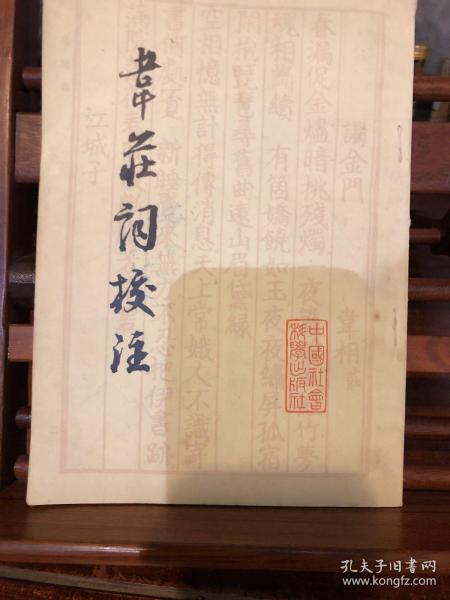 韋莊詞校注
謁金門 韋相莊
春漏促金燼暗挑殘燭一夜
夢
魂相斷續 有箇嬌饒如玉夜夜繡屏孤宿
閑抱琵琶尋舊曲遠山眉黛綠
空相憶無計得傳消息天上常娥人不識寄
書何處覓 新睡覺來無力不忍把伊書跡
滿院
江城子
中國社會
科學出版社
孔夫子旧书网
www.kongfz.com